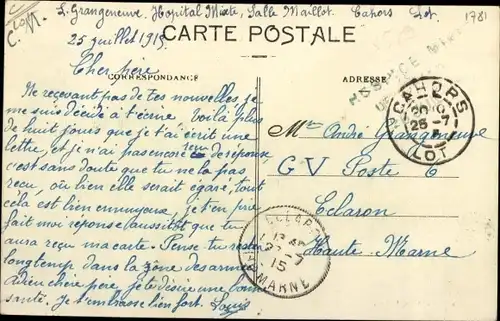 L. Grangeneuve, Hôpital Mixte, Salle Maillot. Cahors Lot. 1781
C. M.
25 juillet 1915.
CARTE POSTALE
Cher frère
CORRESPONDANCE
ADRESSE
Ne recevant pas de tes nouvelles, je
me suis décidé à t'écrire. Voilà plus
de huit jours que je t'ai écrit une
lettre, et je n'ai pas encore reçu de réponse
c'est sans doute que tu ne l'a pas
reçu, ou bien elle serait égaré, tout
cela est bien ennuyeux, je t'en prie
fait moi réponse aussitôt que tu
aura reçu ma carte. Pense tu rester
longtemp dans la zône des armées
Adieu chère père, je te désire une bonne
santé. Je t'embrasse bien fort Louis
CAHORS
25-7
LOT
Mr André Grangeneuve
GV Poste 6
Eclaron
Haute Marne
ECLARON
27-7
15
MARNE